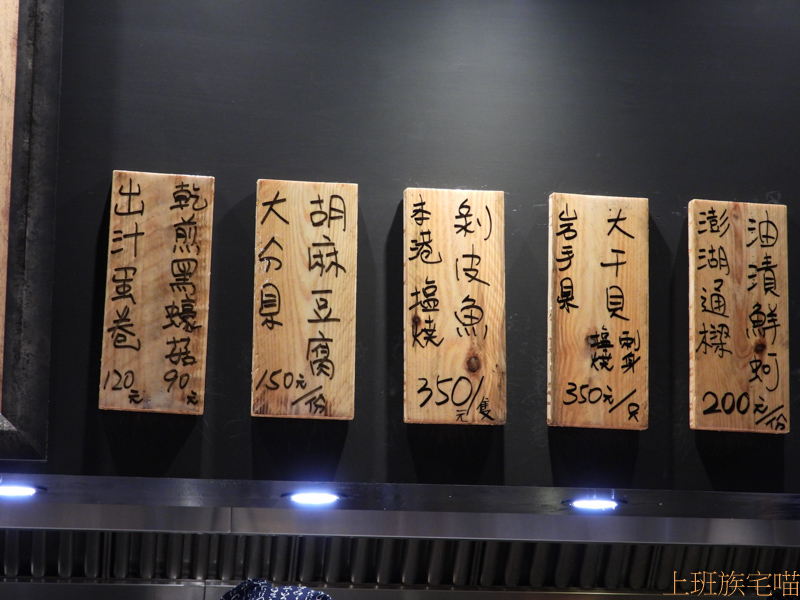 乾煎黑蠔菇
90元
出汁蛋卷
120元
胡麻豆腐
大分県
150元/份
剝皮魚
本港 塩燒
350元/隻
大干貝
刺身
塩燒
岩手県
350元/只
油漬鮮蚵
澎湖通樑
200元/份
上班族宅喵